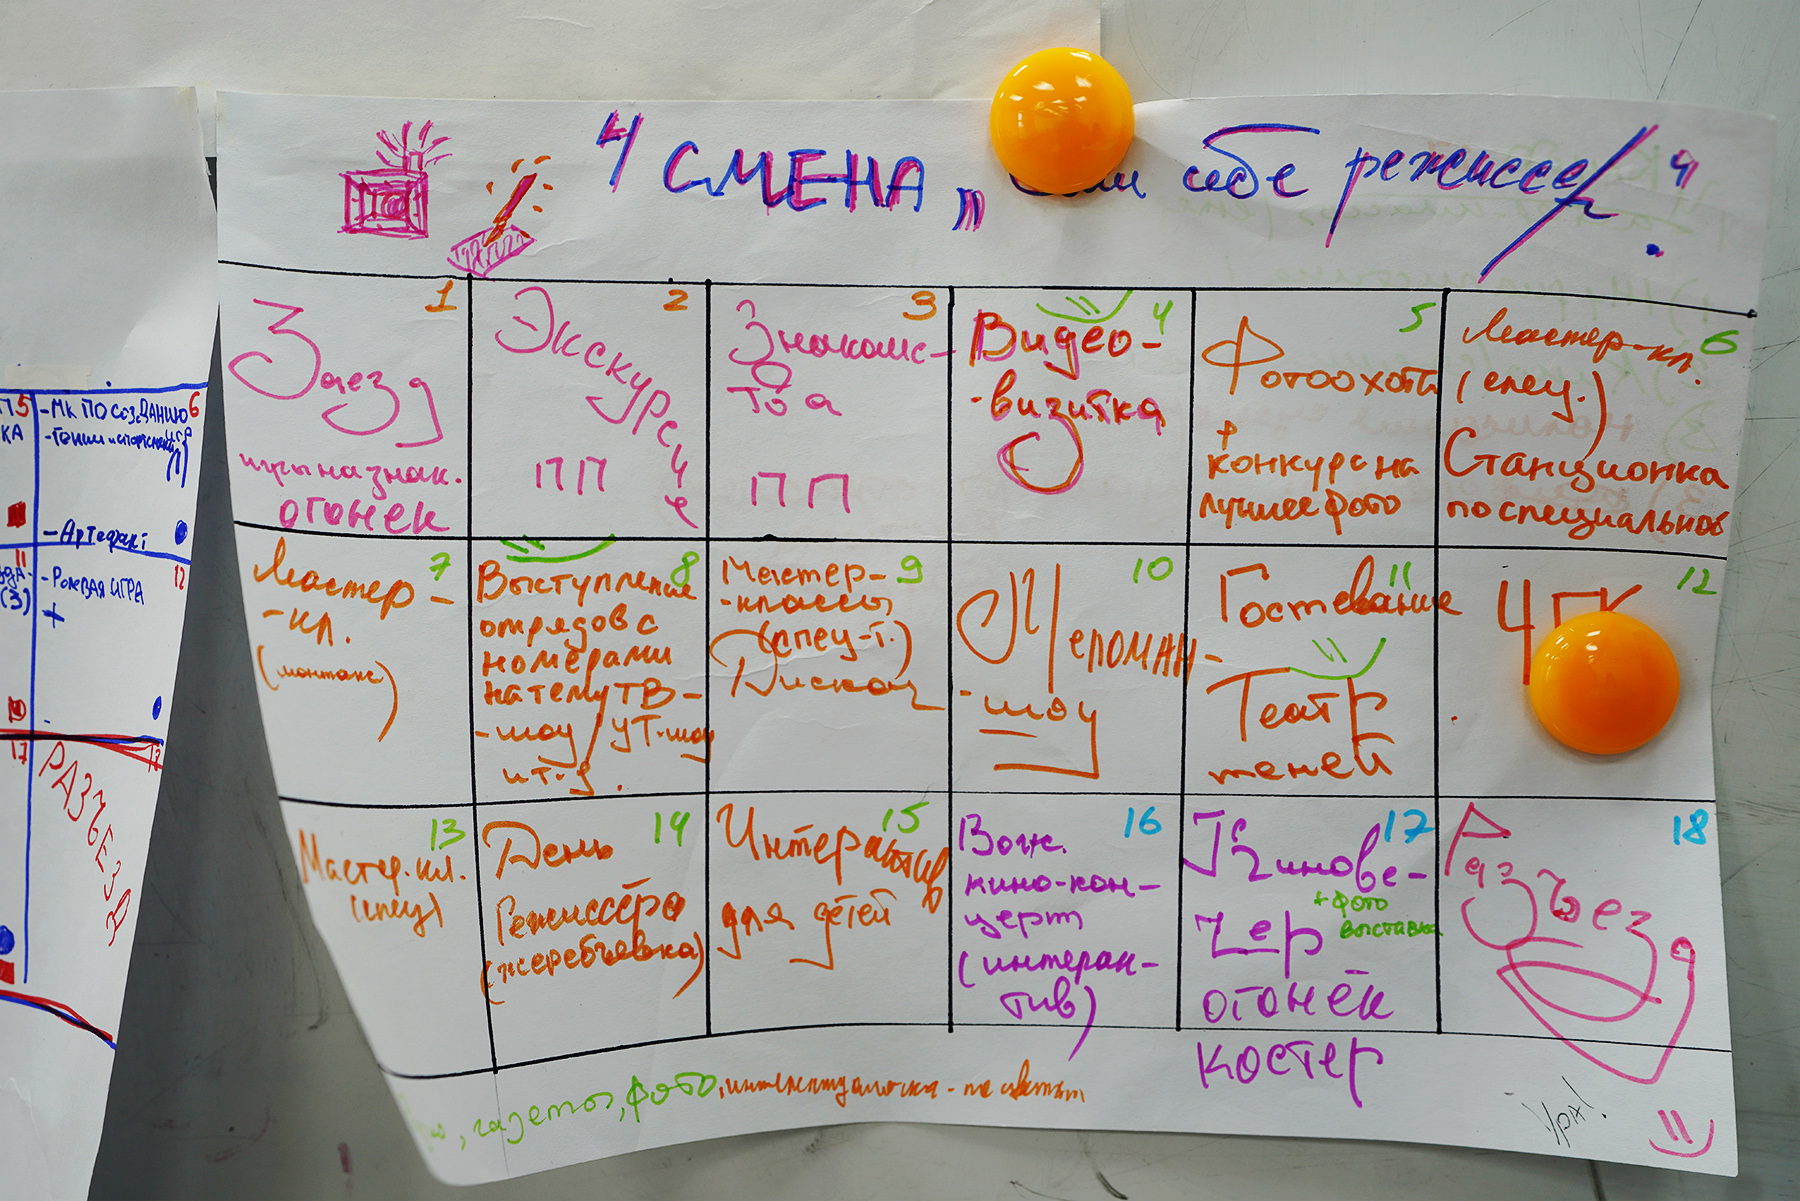 4 СМЕНА „ себе режиссер!"
1
Заезд
огонек
2
Экскурсии
ПП
3
Знакомс-
тва
ПП
4
Видео-
-визитка
5
Фотоохота
+
конкурс на
лучшее фото
6
Мастер-кл.
(спец.)
Станционка
по специальнос
7
Мастер-
-кл.
(монтаж)
8
Выступление
отрядов с
номерами
на тему ТВ-
-шоу/ УТ-шоу
и т.д.
9
Мастер-
-классы
(спец-т.)
Дискач
10
Меломан-
-шоу
11
Гостевание
Театр
теней
12
13
Мастер.кл.
(спец)
14
День
Режиссёра
(жеребьевка)
15
Интерактив
для детей
16
Вож.
кино-кон-
церт
(интерак-
тив)
17
Кинове-
чер
+ фото
выставка
огонёк
костер
18
Разъезд
, газеты, фото, интеллектуалочка - по цветам
Ура!
5
КА
6
-МК ПО СОЗДАНИЮ
-Артефакт
11
(3)
12
-РОЛЕВАЯ ИГРА
+
17
РАЗЪЕЗД